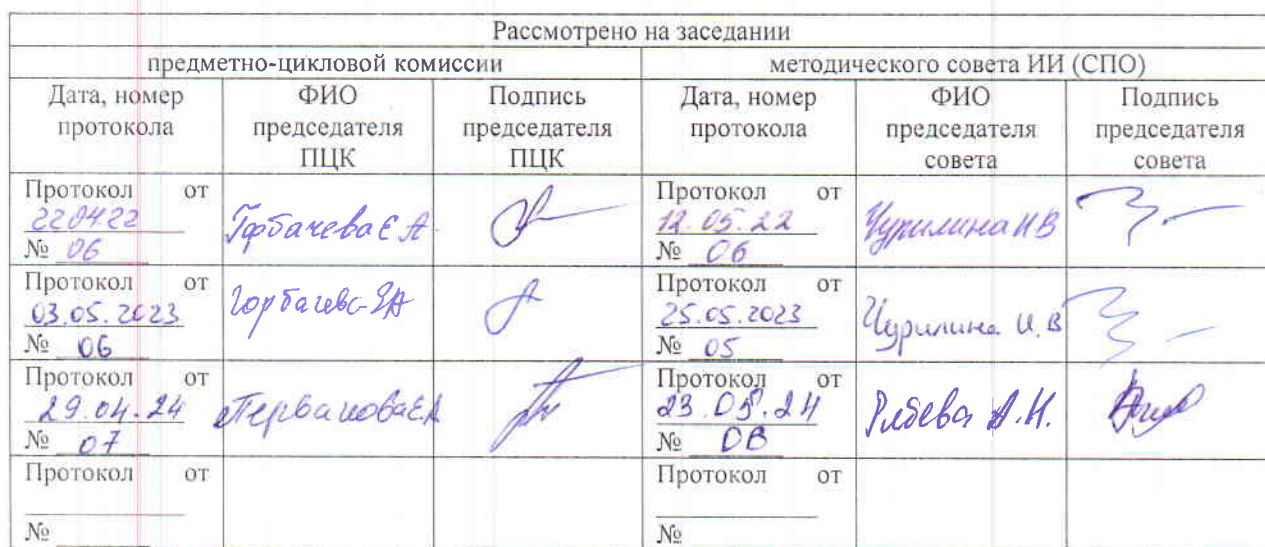 Рассмотрено на заседании
предметно-цикловой комиссии
методического совета ИИ (СПО)
Дата, номер протокола
ФИО председателя ПЦК
Подпись председателя ПЦК
Дата, номер протокола
ФИО председателя совета
Подпись председателя совета
Протокол от
22.04.22
№ 06
Горбачева Е А
Протокол от
12.05.22
№ 06
Чурилина И В
Протокол от
03.05.2023
№ 06
Горбачева ЕА
Протокол от
25.05.2023
№ 05
Чурилина И. В
Протокол от
29.04.24
№ 07
Е.А
Протокол от
23.05.24
№
А.Н.
Протокол от
№
Протокол от
№